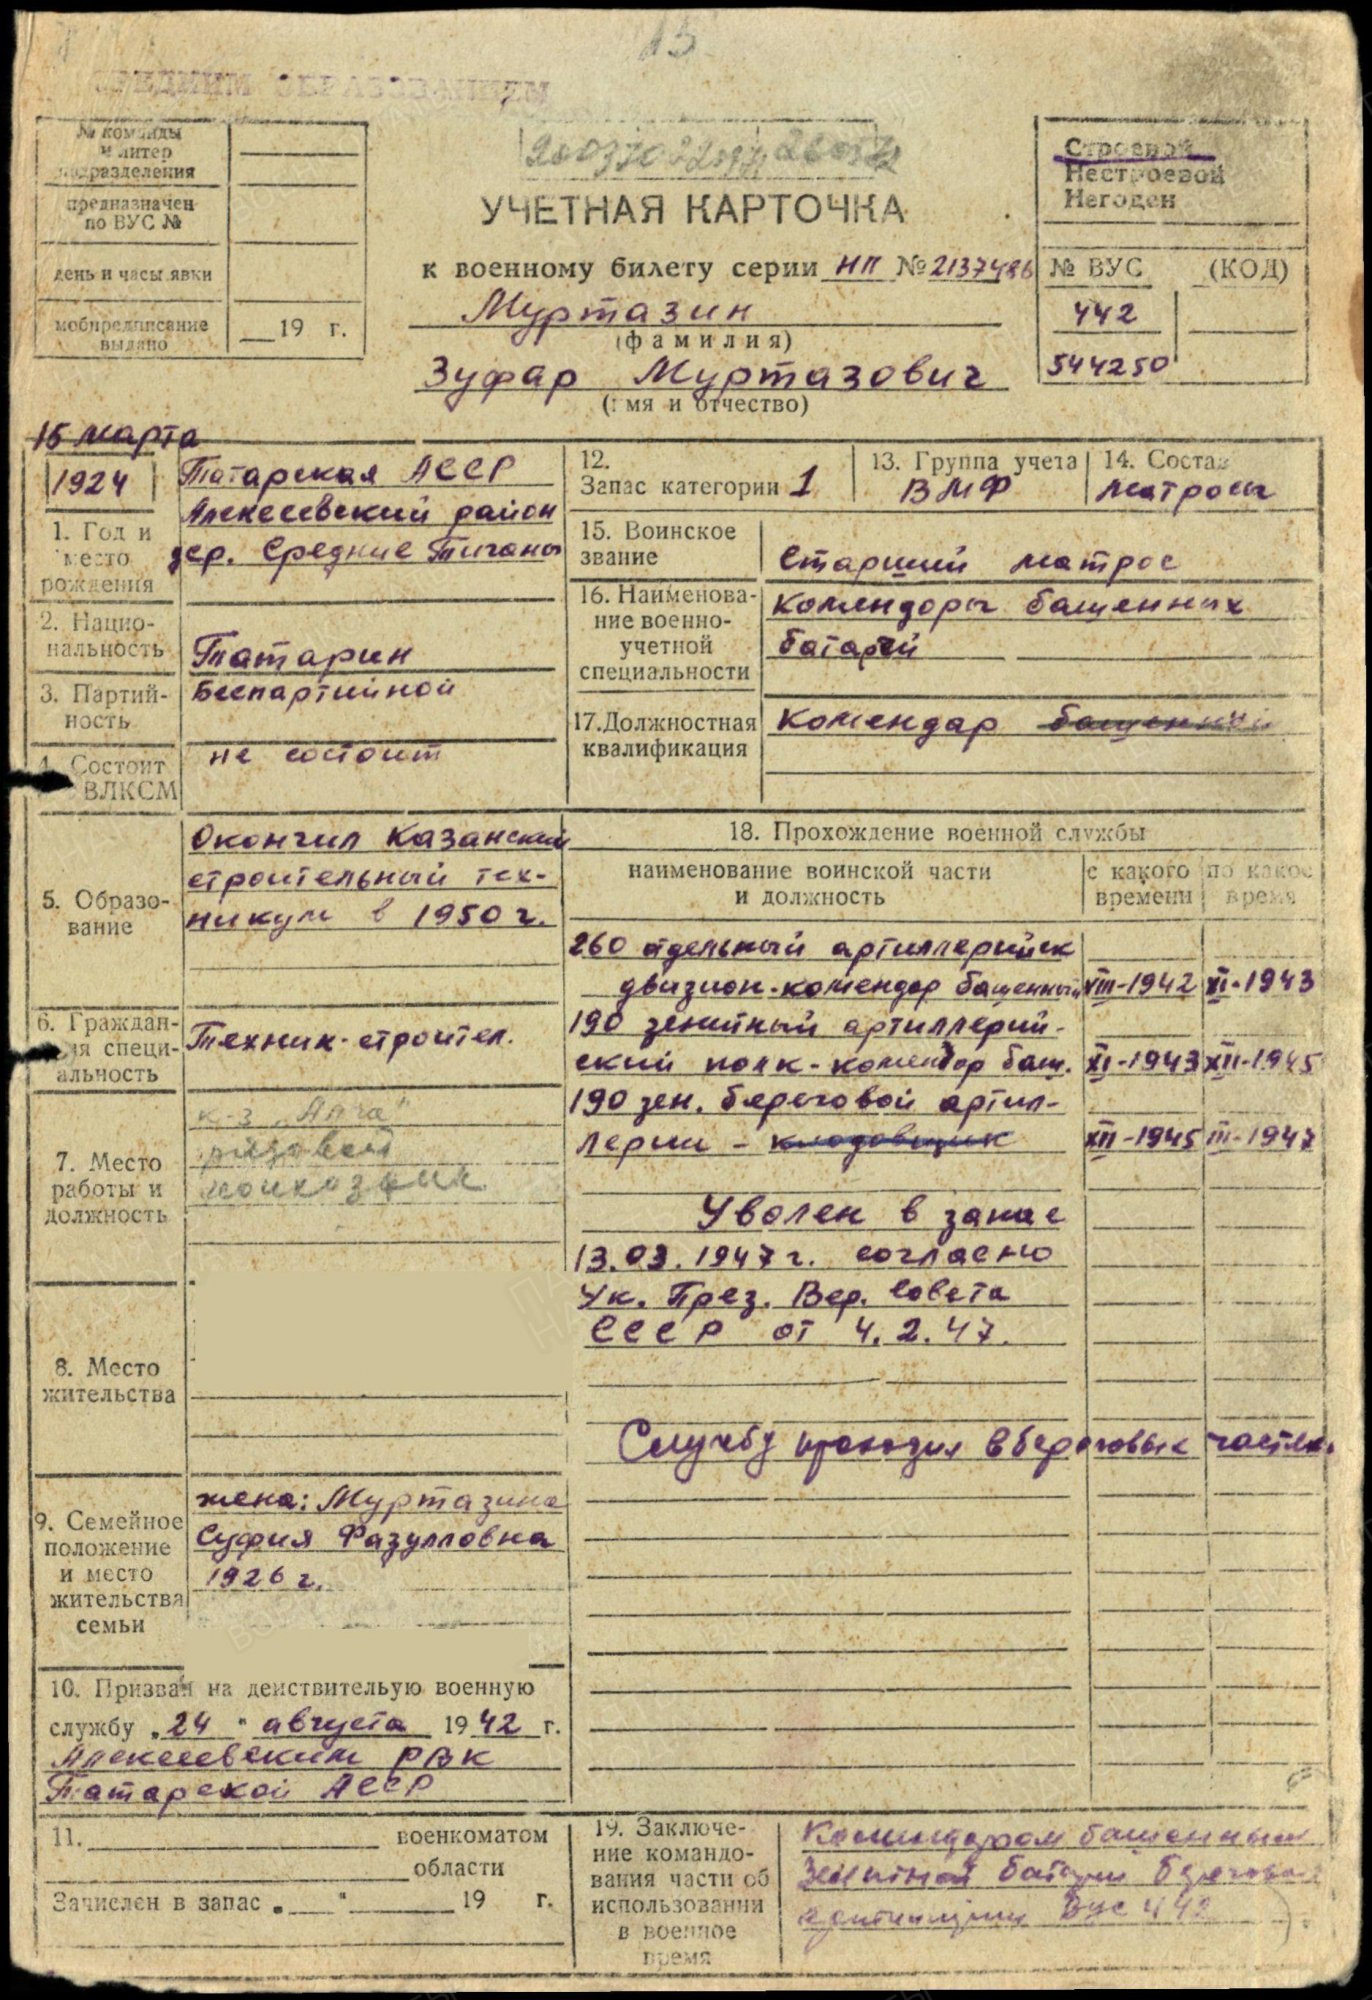 15
№ команды
и литер
подразделения
предназначен
по ВУС №
день и часы явки
мобпредписание
выдано
19 г.
УЧЕТНАЯ КАРТОЧКА
к военному билету серии НП № 2137486
Муртазин
(фамилия)
Зуфар Муртазович
(имя и отчество)
Строевой
Нестроевой
Негоден
№ ВУС (КОД)
442
544250
15 марта
1924
1. Год и
место
рождения
Татарская АССР
Алексеевский район
дер. Средние Тиганы
2. Нацио-
нальность
Татарин
3. Партий-
ность
Беспартийной
4. Состоит
ВЛКСМ
не состоит
5. Образо-
вание
Окончил Казанский
строительный тех-
никум в 1950 г.
6. Граждан-
ая специ-
альность
Техник-строител.
7. Место
работы и
должность
к-з „Алга"
рядовой
8. Место
жительства
9. Семейное
положение
и место
жительства
семьи
жена: Муртазина
Суфия Фазулловна
1926 г.
10. Призван на деиствительую военную
службу „24" августа 1942 г.
Алексеевским РВК
Татарской АССР
11. военкоматом
области
Зачислен в запас „ " 19 г.
12.
Запас категории 1
13. Группа учета
ВМФ
14. Состав
матросы
15. Воинское
звание
Старший матрос
16. Наименова-
ние военно-
учетной
специальности
Комендоры башенных
батарей
17. Должностная
квалификация
Комендар башенный
18. Прохождение военной службы
наименование воинской части
и должность
с какого
времени
по какое
время
260 отдельный артиллерийск
дивизион-комендор башенный VIII-1942 XI-1943
190 зенитный артиллерий-
ский полк-комендор баш. XI-1943 XII-1945
190 зен. береговой артил-
лерии - кладовщик XII-1945 III-1947
Уволен в запас
13.03.1947 г. согласно
Ук. През. Вер. Совета
СССР от 4.2.47.
Службу проходил в береговых частях.
19. Заключе-
ние командо-
вания части об
использовании
в военное
время
Комендором башенным
зенитной батареи береговой
артиллерии ВУС 442